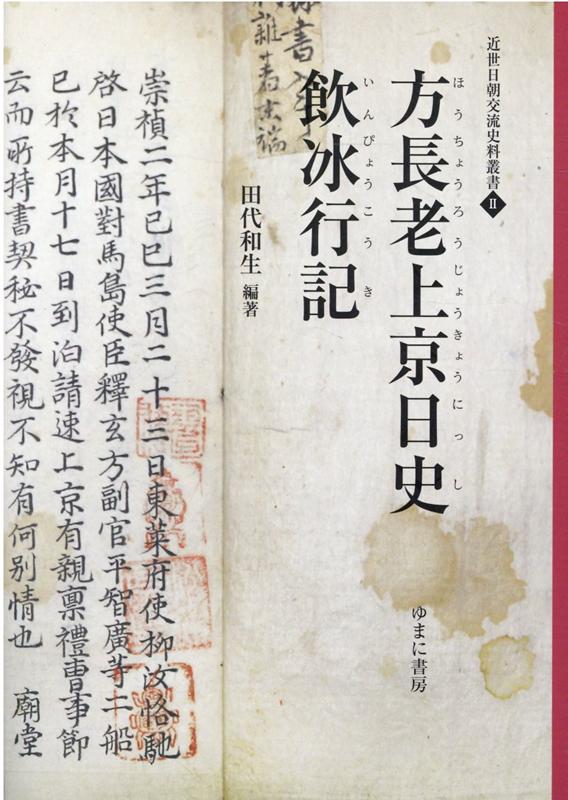 近世日朝交流史料叢書 II
方長老上京日史
ほうちょうろうじょうきょうにっし
飲冰行記
いんぴょうこうき
田代和生 編著
ゆまに書房
崇禎二年己巳三月二十三日東萊府使柳汝恪馳
啓日本國對馬島使臣釋玄方副官平智廣等二船
已於本月十七日到泊請速上京有親禀禮曹事節
云而所持書契秘不發視不知有何別情也 廟堂